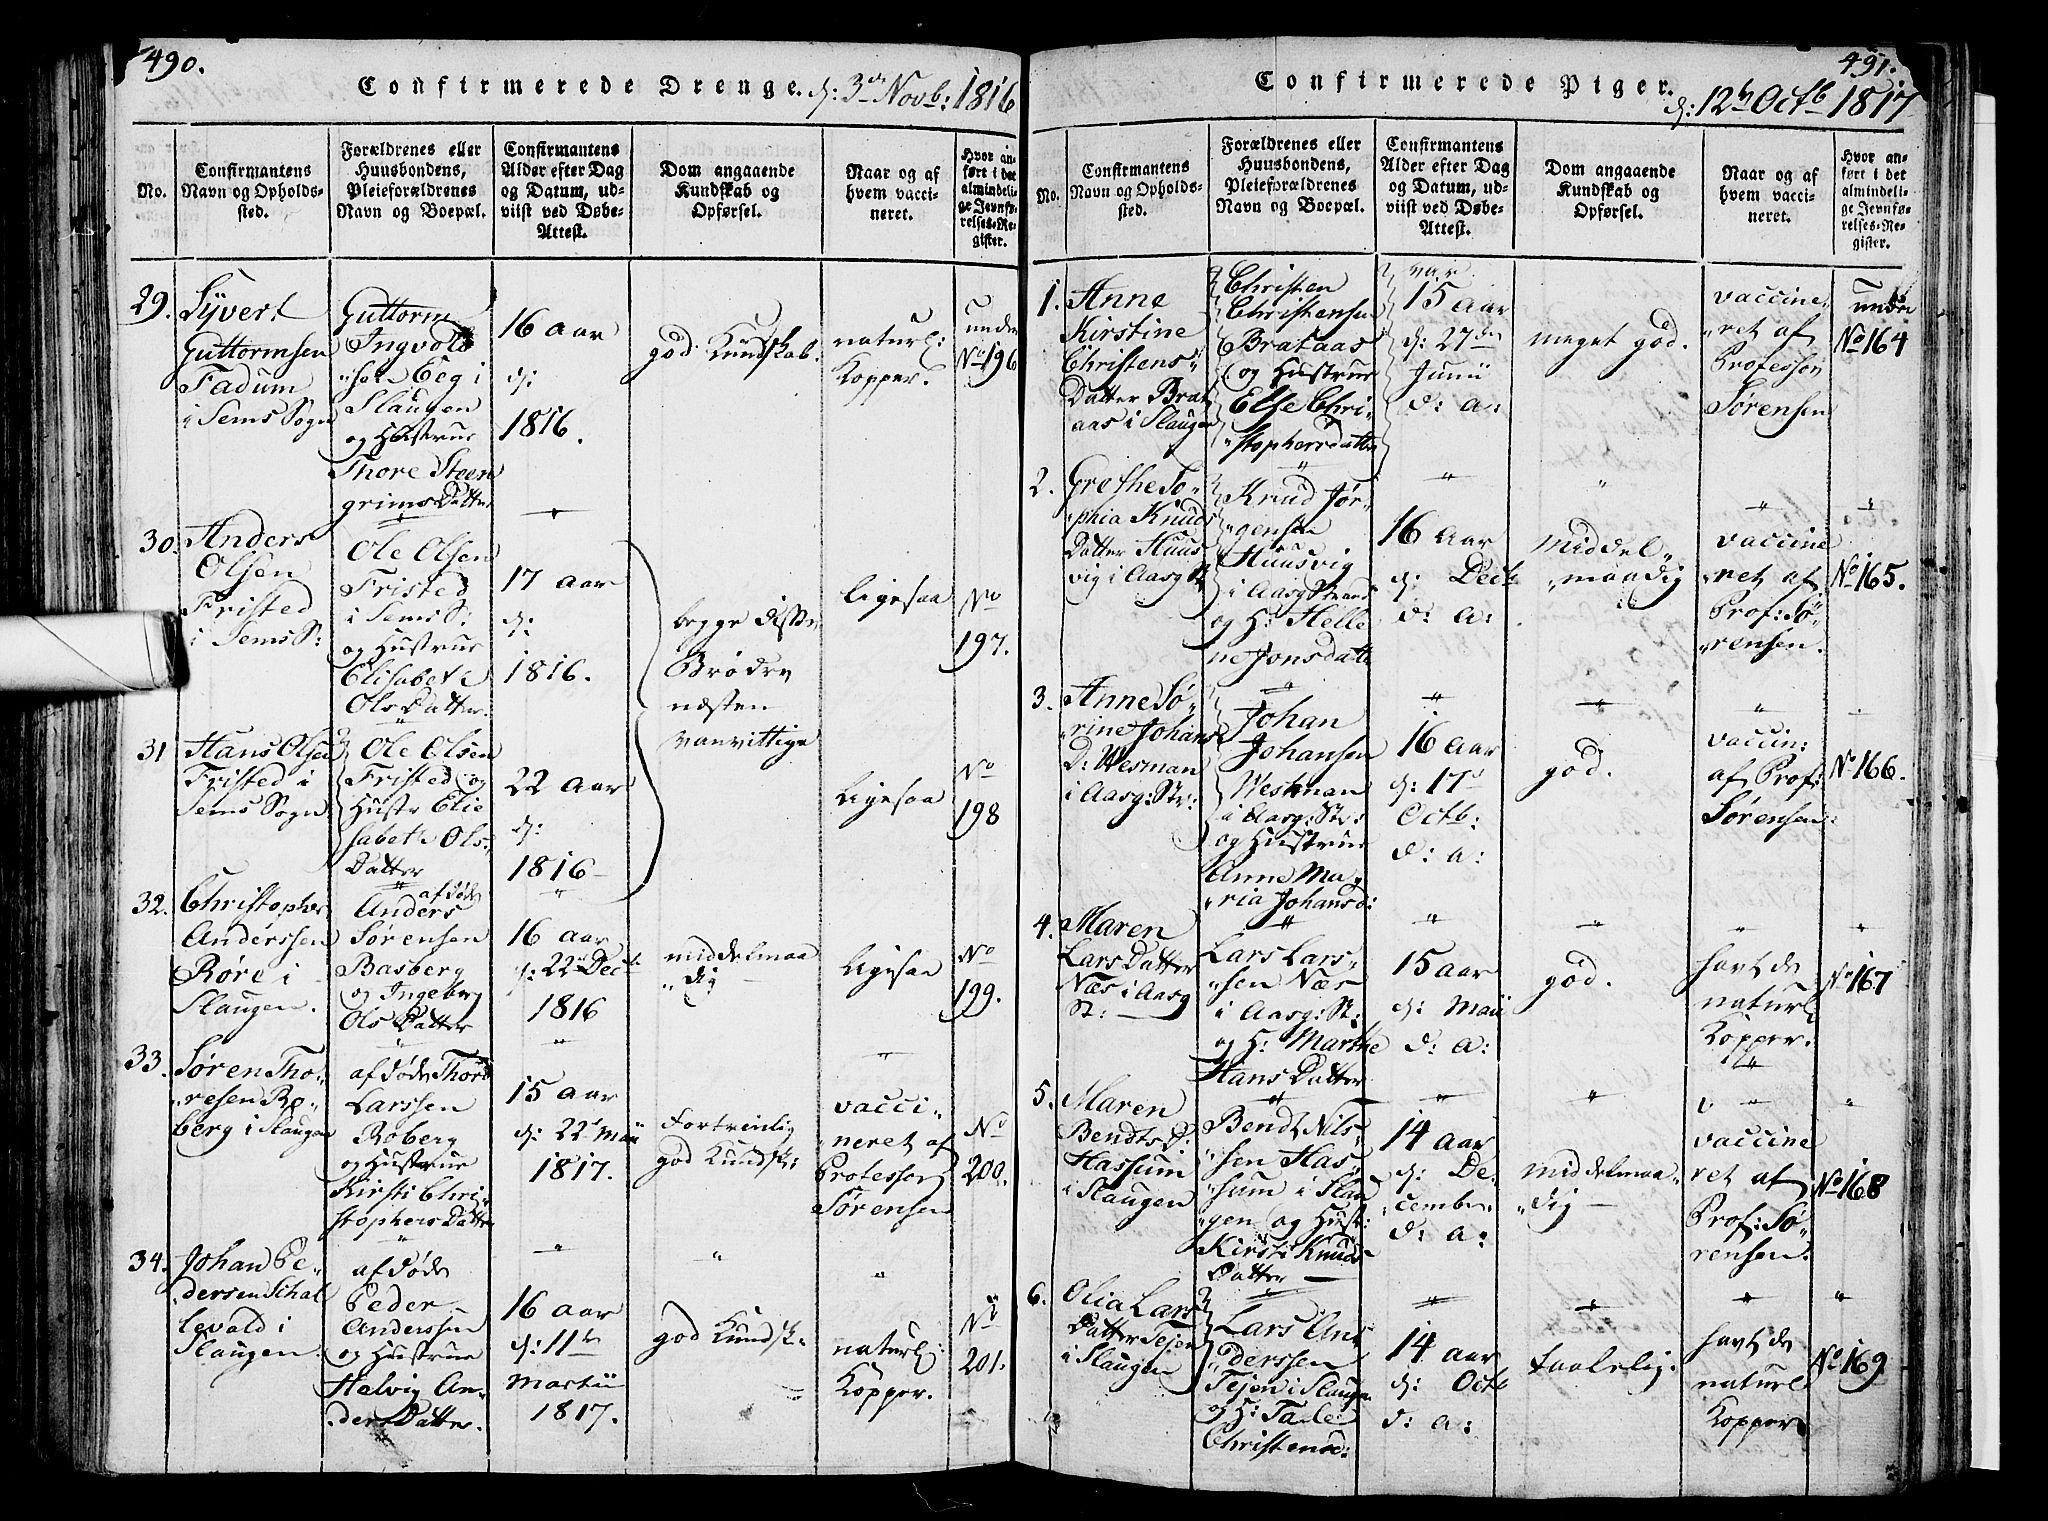 490.
Confirmerede Drenge. d: 3die Novb: 1816
No.
Confirmantens
Navn og Opholds-
sted.
Forældrenes eller
Huusbondens,
Pleieforældrenes
Navn og Boepæl.
Confirmantens
Alder efter Dag
og Datum, ud-
viist ved Døbe-
Attest.
Dom angaaende
Kundskab og
Opførsel.
Naar og af
hvem vacci-
neret.
Hvor an-
ført i det
almindeli-
ge Jevnfø-
relses-Re-
gister.
29.
Syvert
Guttormsen
Fadum
i Sems Sogn
Guttorm
Ingvold
"sen Eeg i
Slaugen
og Hustrue
Thore Steen
grims Datter
16 aar
d:
1816.
god Kundskab.
naturl:
Kopper.
under
No 196
30.
Anders
Olsen
Fristed
i Sems S:
Ole Olsen
Fristed
i Sems S:
og Hustrue
Elisabet
Ols Datter.
17 aar
d:
1816.
begge disse
Brødre
næsten
vanvittige
ligesaa
No
197.
31
Hans Olsen
Fristed i
Sems Sogn
Ole Olsen
Fristed og
Hustr Elie
sabet Ols-
Datter
22 aar
d:
1816
ligesaa
No
198
32.
Christopher
Anderssen
Røre i
Slaugen.
afdøde
Anders
Sørensen
Basberg
og Ingeborg
Ols Datter
16 aar
d: 22 Decb:
1816
middelmaa
"dig
ligesaa
No
199.
33.
Søren Tho-
"resen Ro-
berg i Slaugen
afdøde Thore
Larssen
Roberg
og Hustrue
Kirsti Chri-
stophers Datter
15 aar
d: 22 Maii
1817.
Fortrinlig
god Kundsk:
vacci-
"neret af
Professor
Sørensen
No
200.
34.
Johan Pe-
dersen Schal
levald i
Slaugen.
afdøde
Peder
Anderssen
og Hustrue
Helvig An-
ders Datter.
16 aar
d: 11te
Martii
1817.
god Kundsk:
naturl:
Kopper.
No
201.
491.
Confirmerede Piger. d: 12te Octb 1817
No.
Confirmantens
Navn og Opholds-
sted.
Forældrenes eller
Huusbondens,
Pleieforældrenes
Navn og Boepæl.
Confirmantens
Alder efter Dag
og Datum, ud-
viist ved Døbe-
Attest.
Dom angaaende
Kundskab og
Opførsel.
Naar og af
hvem vacci-
neret.
Hvor an-
ført i det
almindeli-
ge Jevnfø-
relses-Re-
gister.
1.
Anne
Kirstine
Christens-
Datter Brat
aas i Slaugen
Christen
Christensen
Brataas
og Hustrue
Else Chri-
"stophersdatter
var
15 aar
d: 27de
Junii
d: a:
meget god.
vaccine-
"ret af
Professor
Sørensen
under
No 164
2.
Grethe So-
"phia Knuds
Datter Huus
vig i Aasg St
Knud Jør-
"gensen
Huusvig
i Aasg Strand
og H: Helle
ne Jonsdatter
16 aar
d: Decb
d: a:
middel-
"maadig
vaccine
"ret af
Prof: Sø-
"rensen.
No 165.
3.
Anne Sø-
"rine Johans
D: Wesman
i Aasg: Str:
Johan
Johansen
Wesman
i Aasg: Str:
og Hustrue
Anne Ma-
"ria Johansd:
16 aar
d: 17de
Octb:
d: a:
god.
vaccin:
af Prof:
Sørensen:
No 166.
4.
Maren
Lars Datter
Næs i Aasg
St:
Lars Lars-
"sen Næs
i Aasg: St:
og H: Marthe
Hans Datter
15 aar
d: Maii
d: a:
god.
havt de
naturl
Kopper.
No 167
5.
Maren
Bendts D:
Hassum
i Slaugen
Bendt Nils-
"sen Has-
"sum i Slau
"gen og Hust:
Kirsti Knuds-
Datter
14 aar
d: De-
"cember
d: a:
middelmaa-
"dig
vaccine
ret af
Prof: Sø-
rensen.
No 168
6.
Olia Lars
Datter Tejen
i Slaugen
Lars An-
"derssen
Tejen i Slaugen
og H: Tale
Christensd:
14 aar
d: Octb
d: a:
taalelig.
havt de
naturl
Kopper
No 169